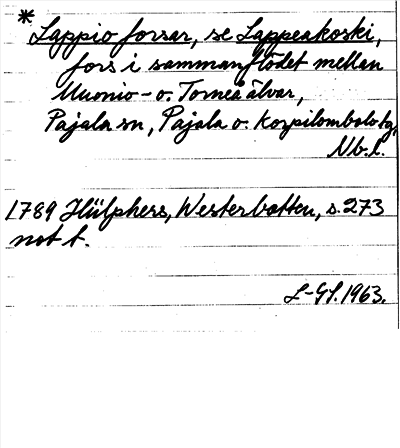 * Lappio forsar, se Lappeakoski,
fors i sammanflödet mellan
Muonio- o. Torneå älvar,
Pajala sn, Pajala o. Korpilombolo tg,
Nb. l.
1789 Hülphers, Westerbotten, s. 273
not t.
L-GS. 1963.